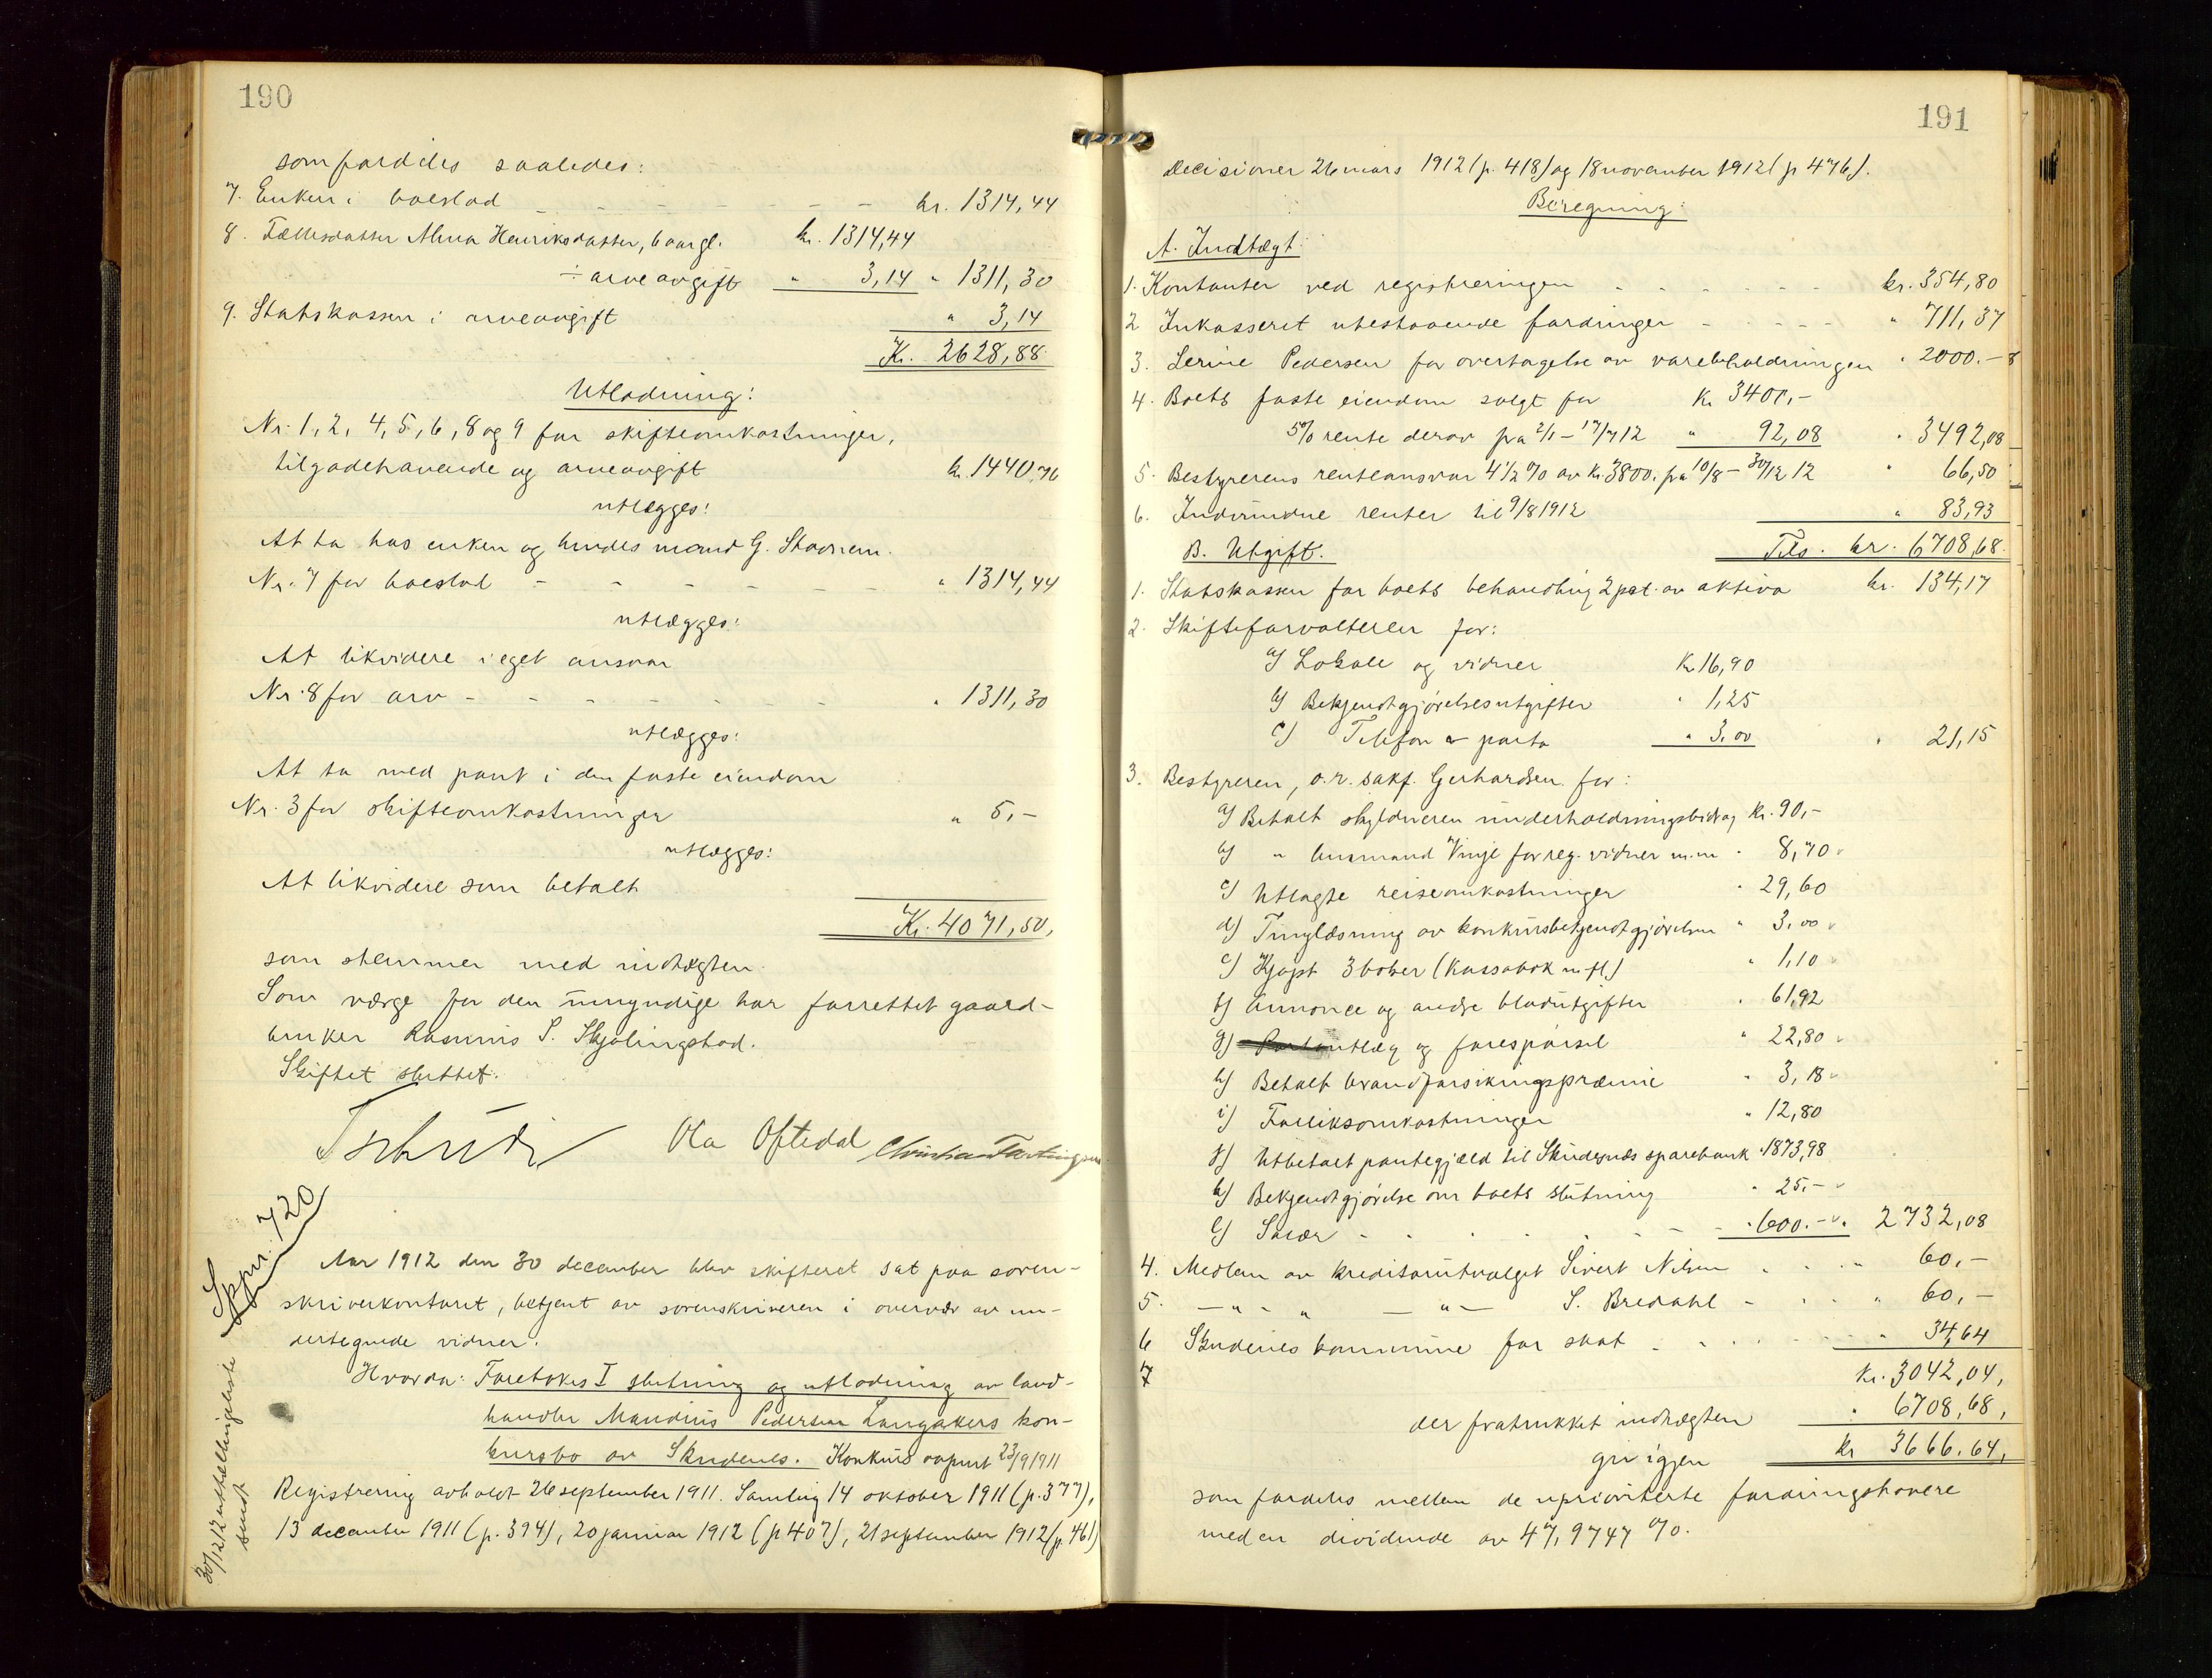 190
som fordeles saaledes:
7. Enken i boeslod - - - - - - kr. 1314,44
8. Fællesdatter Alma Henriksdatter, 6 aar gl. kr. 1314,44
÷ arveavgift " 3,14 " 1311,30
9. Statskassen i arveavgift " 3,14
Kr. 2628,88
Utlodning:
Nr. 1, 2, 4, 5, 6, 8 og 9 for skifteomkostninger,
tilgodehavende og arveavgift kr. 1440,76
utlægges:
At ta hos enken og hendes mand G. Stavnem.
Nr. 7 for boeslod - - - - - - " 1314,44
utlægges:
At likvidere i eget ansvar
Nr. 8 for arv - - - - - - " 1311,30
utlægges:
At ta med pant i den faste eiendom
Nr. 3 for skifteomkostninger " 5,-
utlægges:
At likvidere som betalt
Kr. 4071,50,
som stemmer med indtægten.
Som værge for den umyndige har forrettet gaard-
bruker Rasmus S. Skjølingstad.
Skiftet sluttet.
Ola Oftedal
Skpr. 720
Aar 1912 den 30 december blev skifteret sat paa soren-
skriverkontoret, betjent av sorenskriveren i overvær av un-
dertegnede vidner.
Hvorda: Foretokes I slutning og utlodning av land-
handler Mandius Pedersen Langakers kon-
kursbo av Skudenes. Konkurs aapnet 23/9 1911
Registrering avholdt 26 september 1911. Samling 14 oktober 1911 (p. 377),
13 december 1911 (p. 394), 20 januar 1912 (p 407), 21 september 1912 (p. 461)
30/12 12 utstællingsliste
sendt
191
decisioner 26 mars 1912 (p. 418) og 18 november 1912 (p 476).
Beregning:
A. Indtægt:
1. Kontanter ved registreringen - - - - - - kr. 354,80
2 Inkasseret utestaaende fordringer - - - - - " 711,37
3. Serine Pedersen for overtagelse av varebeholdningen " 2000.-
4. Boets faste eiendom solgt for Kr 3400,-
5% rente derav fra 2/1 - 17/7 12 " 92,08 " 3492,08
5. Bestyrerens renteansvar 4 1/2 % av kr. 3800. fra 10/8 - 30/12 12 " 66,50
6. Indvundne renter til 9/8 1912 " 83,93
Tils. kr. 6708,68.
B. Utgift.
1. Statskassen for boets behandling 2 pct. av aktiva kr. 134,17
2. Skifteforvalteren for:
a) Lokale og vidner Kr. 16,90
b) Bekjendtgjørelsesutgifter " 1,25
c) Telefon & porto " 3,00 " 21,15
3. Bestyreren, o.r. sakf. Gerhardsen for:
a) Betalt skyldneren underholdningsbidrag kr. 90,-
b) " lensmand Vinje for reg. vidner m.m " 8,70
c) Utlagte reiseomkostninger " 29,60
d) Tinglæsning av konkursbekjendtgjørelsen " 3,00
e) Kjøpt 3 bøker (Kassabok m. fl.) " 1,10
f) Annonce og andre bladutgifter " 61,92
g) utlæg og forespørsel " 22,80
h) Betalt brandforsikringspræmie " 3,18
i) Forliksomkostninger " 12,80
j) Utbetalt pantegjæld til Skudenæs sparebank " 1873,98
k) Bekjendtgjørelse om boets slutning " 25,-
l) Salær - - - - - - " 600.- " 2732,08
4. Medlem av kreditorutvalget Sivert Nilsen - - - " 60,-
5. -"- " -"- S. Bredahl - - - " 60,-
6 Skudenes kommune for skat - - - - - " 34,64
7 Kr. 3042,04,
der fratrukket indtægten " 6708,68,
gir igjen kr 3666.64,
som fordeles mellem de uprioriterte fordringshavere
med en dividende av 47,9747 %.